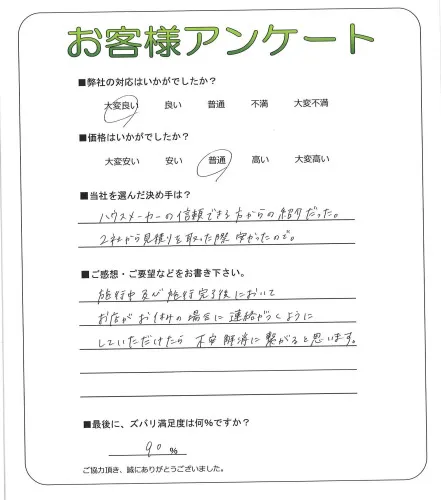 お客様アンケート
■弊社の対応はいかがでしたか？
大変良い 良い 普通 不満 大変不満
■価格はいかがでしたか？
大変安い 安い 普通 高い 大変高い
■当社を選んだ決め手は？
ハウスメーカーの信頼できる方からの紹介だった。
2社から見積りを取った際 安かったので。
■ご感想・ご要望などをお書き下さい。
施行中及び施行完了後において
お店がお休みの場合に連絡がつくように
していただけたら 不安解消に繋がると思います。
■最後に、ズバリ満足度は何％ですか？
90 ％
ご協力頂き、誠にありがとうございました。